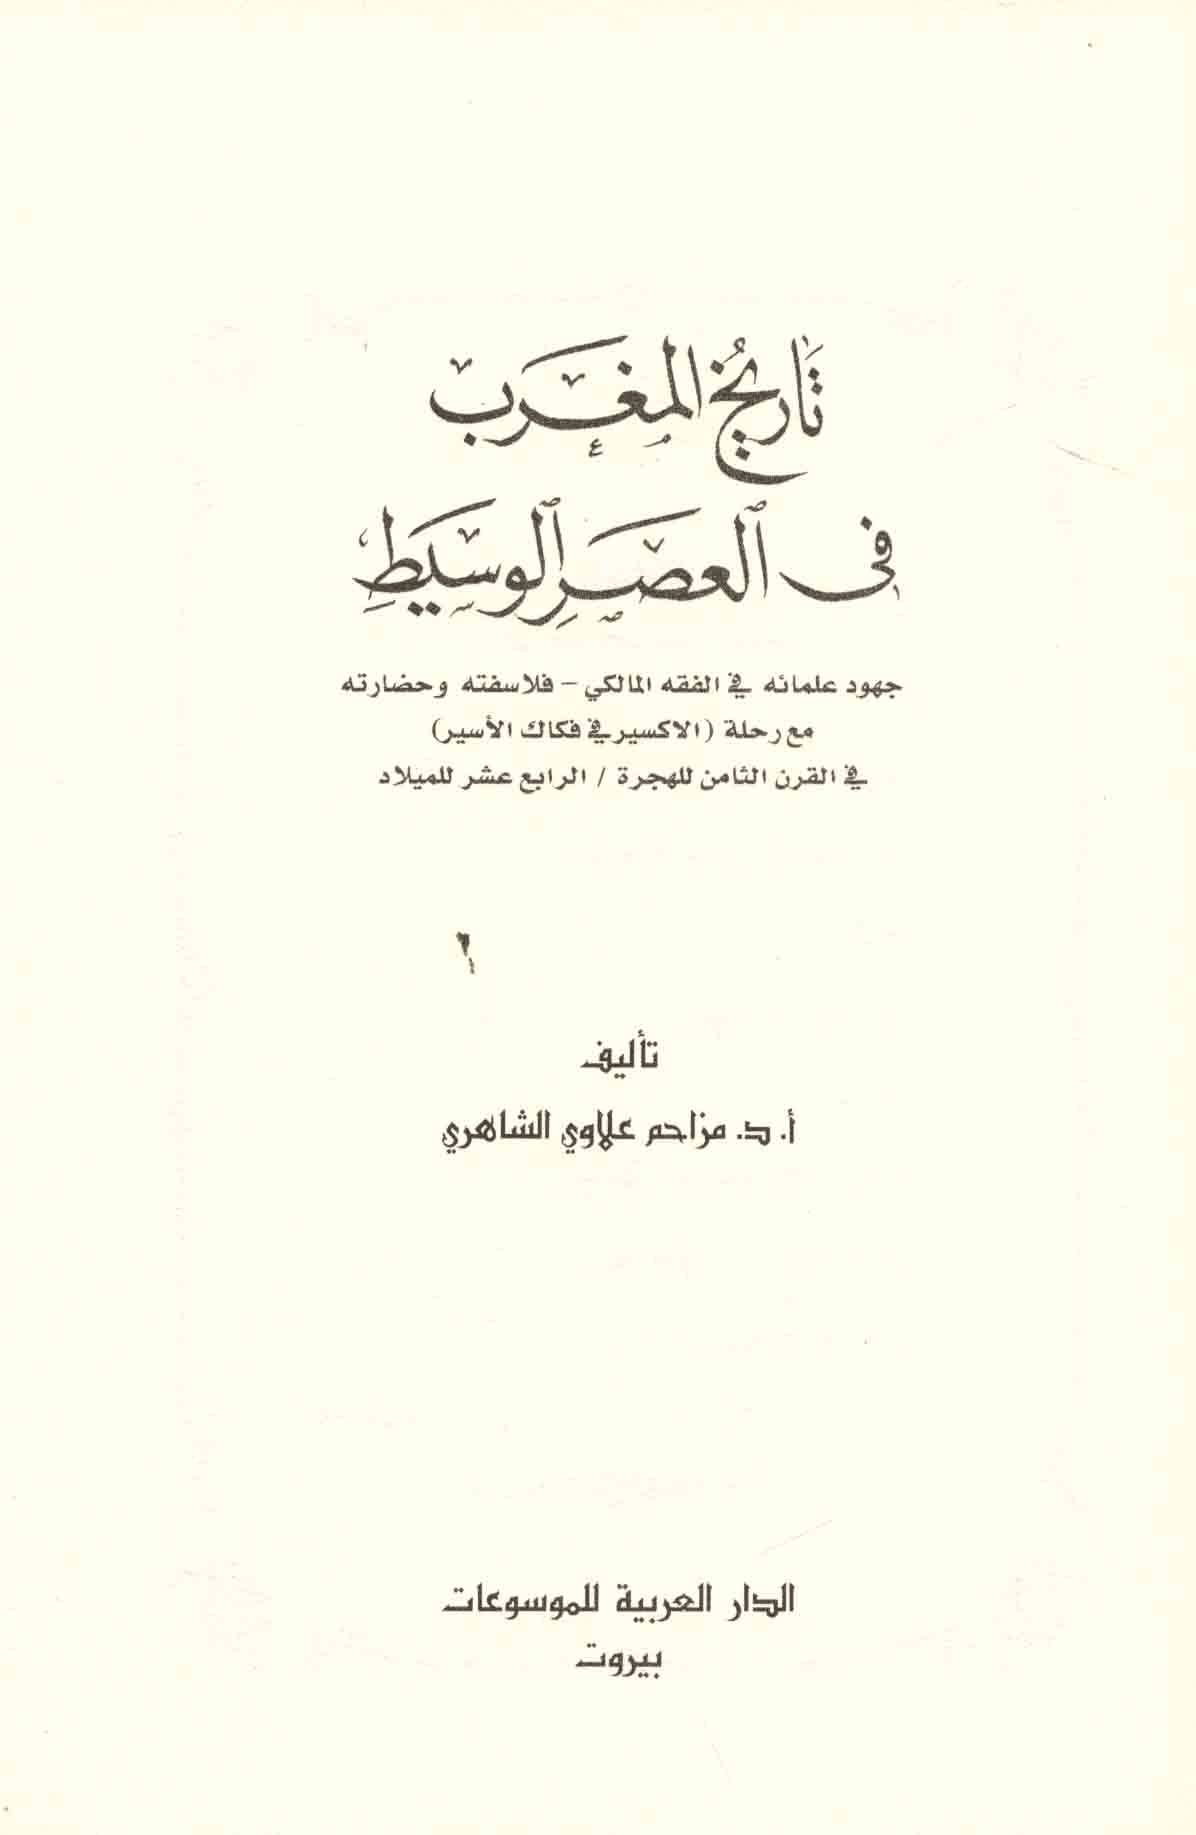 تاريخ المغرب
في العصر الوسيط
جهود علمائه في الفقه المالكي – فلاسفته وحضارته
مع رحلة (الاكسير في فكاك الأسير)
في القرن الثامن للهجرة / الرابع عشر للميلاد
تأليف
أ. د. مزاحم علاوي الشاهري
الدار العربية للموسوعات
بيروت